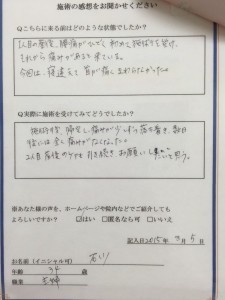 施術の感想をお聞かせください
Qこちらに来る前はどのような状態でしたか?
1人目の産後、腰痛がひどく初めて施術を受け、
それから痛みがあると来ている。
今回は、寝違えて首が痛くまわらなかった。
Q実際に施術を受けてみてどうでしたか?
施術後、帰宅し痛みが少しずつ落ち着き、数日
後には全く痛みがなくなった。
2人目産後のケアも引き続きお願いしたいと思う。
尚あなた様の声を、ホームページや院内などでご紹介しても
よろしいですか? ☑はい □匿名なら可 □いいえ
記入日2015年 3月 5日
お名前(イニシャル可) 石川
年齢 34 歳
職業 主婦